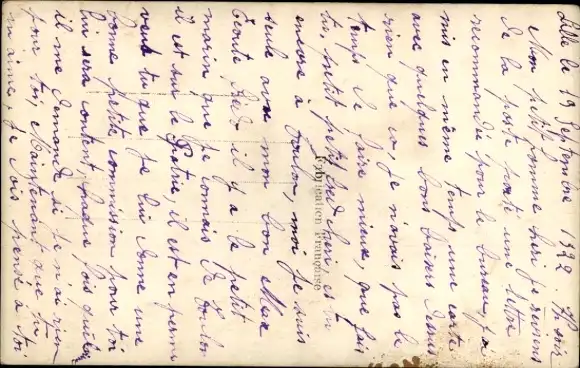 Lille le 19 Septembre 1922. soir
Mon petit homme chéri je reviens
de la poste porte une lettre
recommandé pour le bureau, j'ai
mis en même temps une carte
avec quelques bons baisers dessus
rien que ça, je n'avais pas le
temps de faire mieux, que fais
tu, petit petit es tu
encore à Toulon, moi je suis
seule avec mon bon Max
Écoute, il y a le petit
marin que je connais de Toulon
il est sur le Patrie, il est en perme
veux tu que je lui donne une
bonne petite commission pour toi
lui sera content, puisque
il me demande si je n'ai rien
pour toi, Maintenant que tu
m'aime, je dois pensé à toi
Fabrication Française